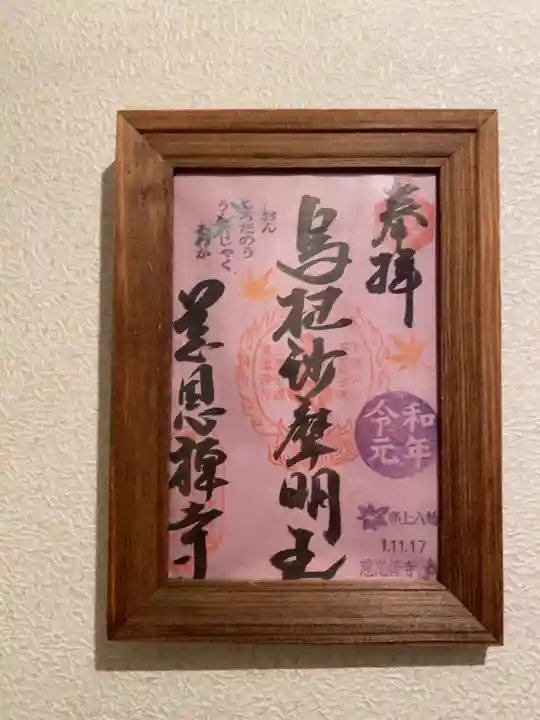 奉拝
令和
元年
郡上八幡
1.11.17
慈恩禅寺
烏枢沙摩明王
おん
くろだのう
うんじゃく
そわか
慈恩禅寺